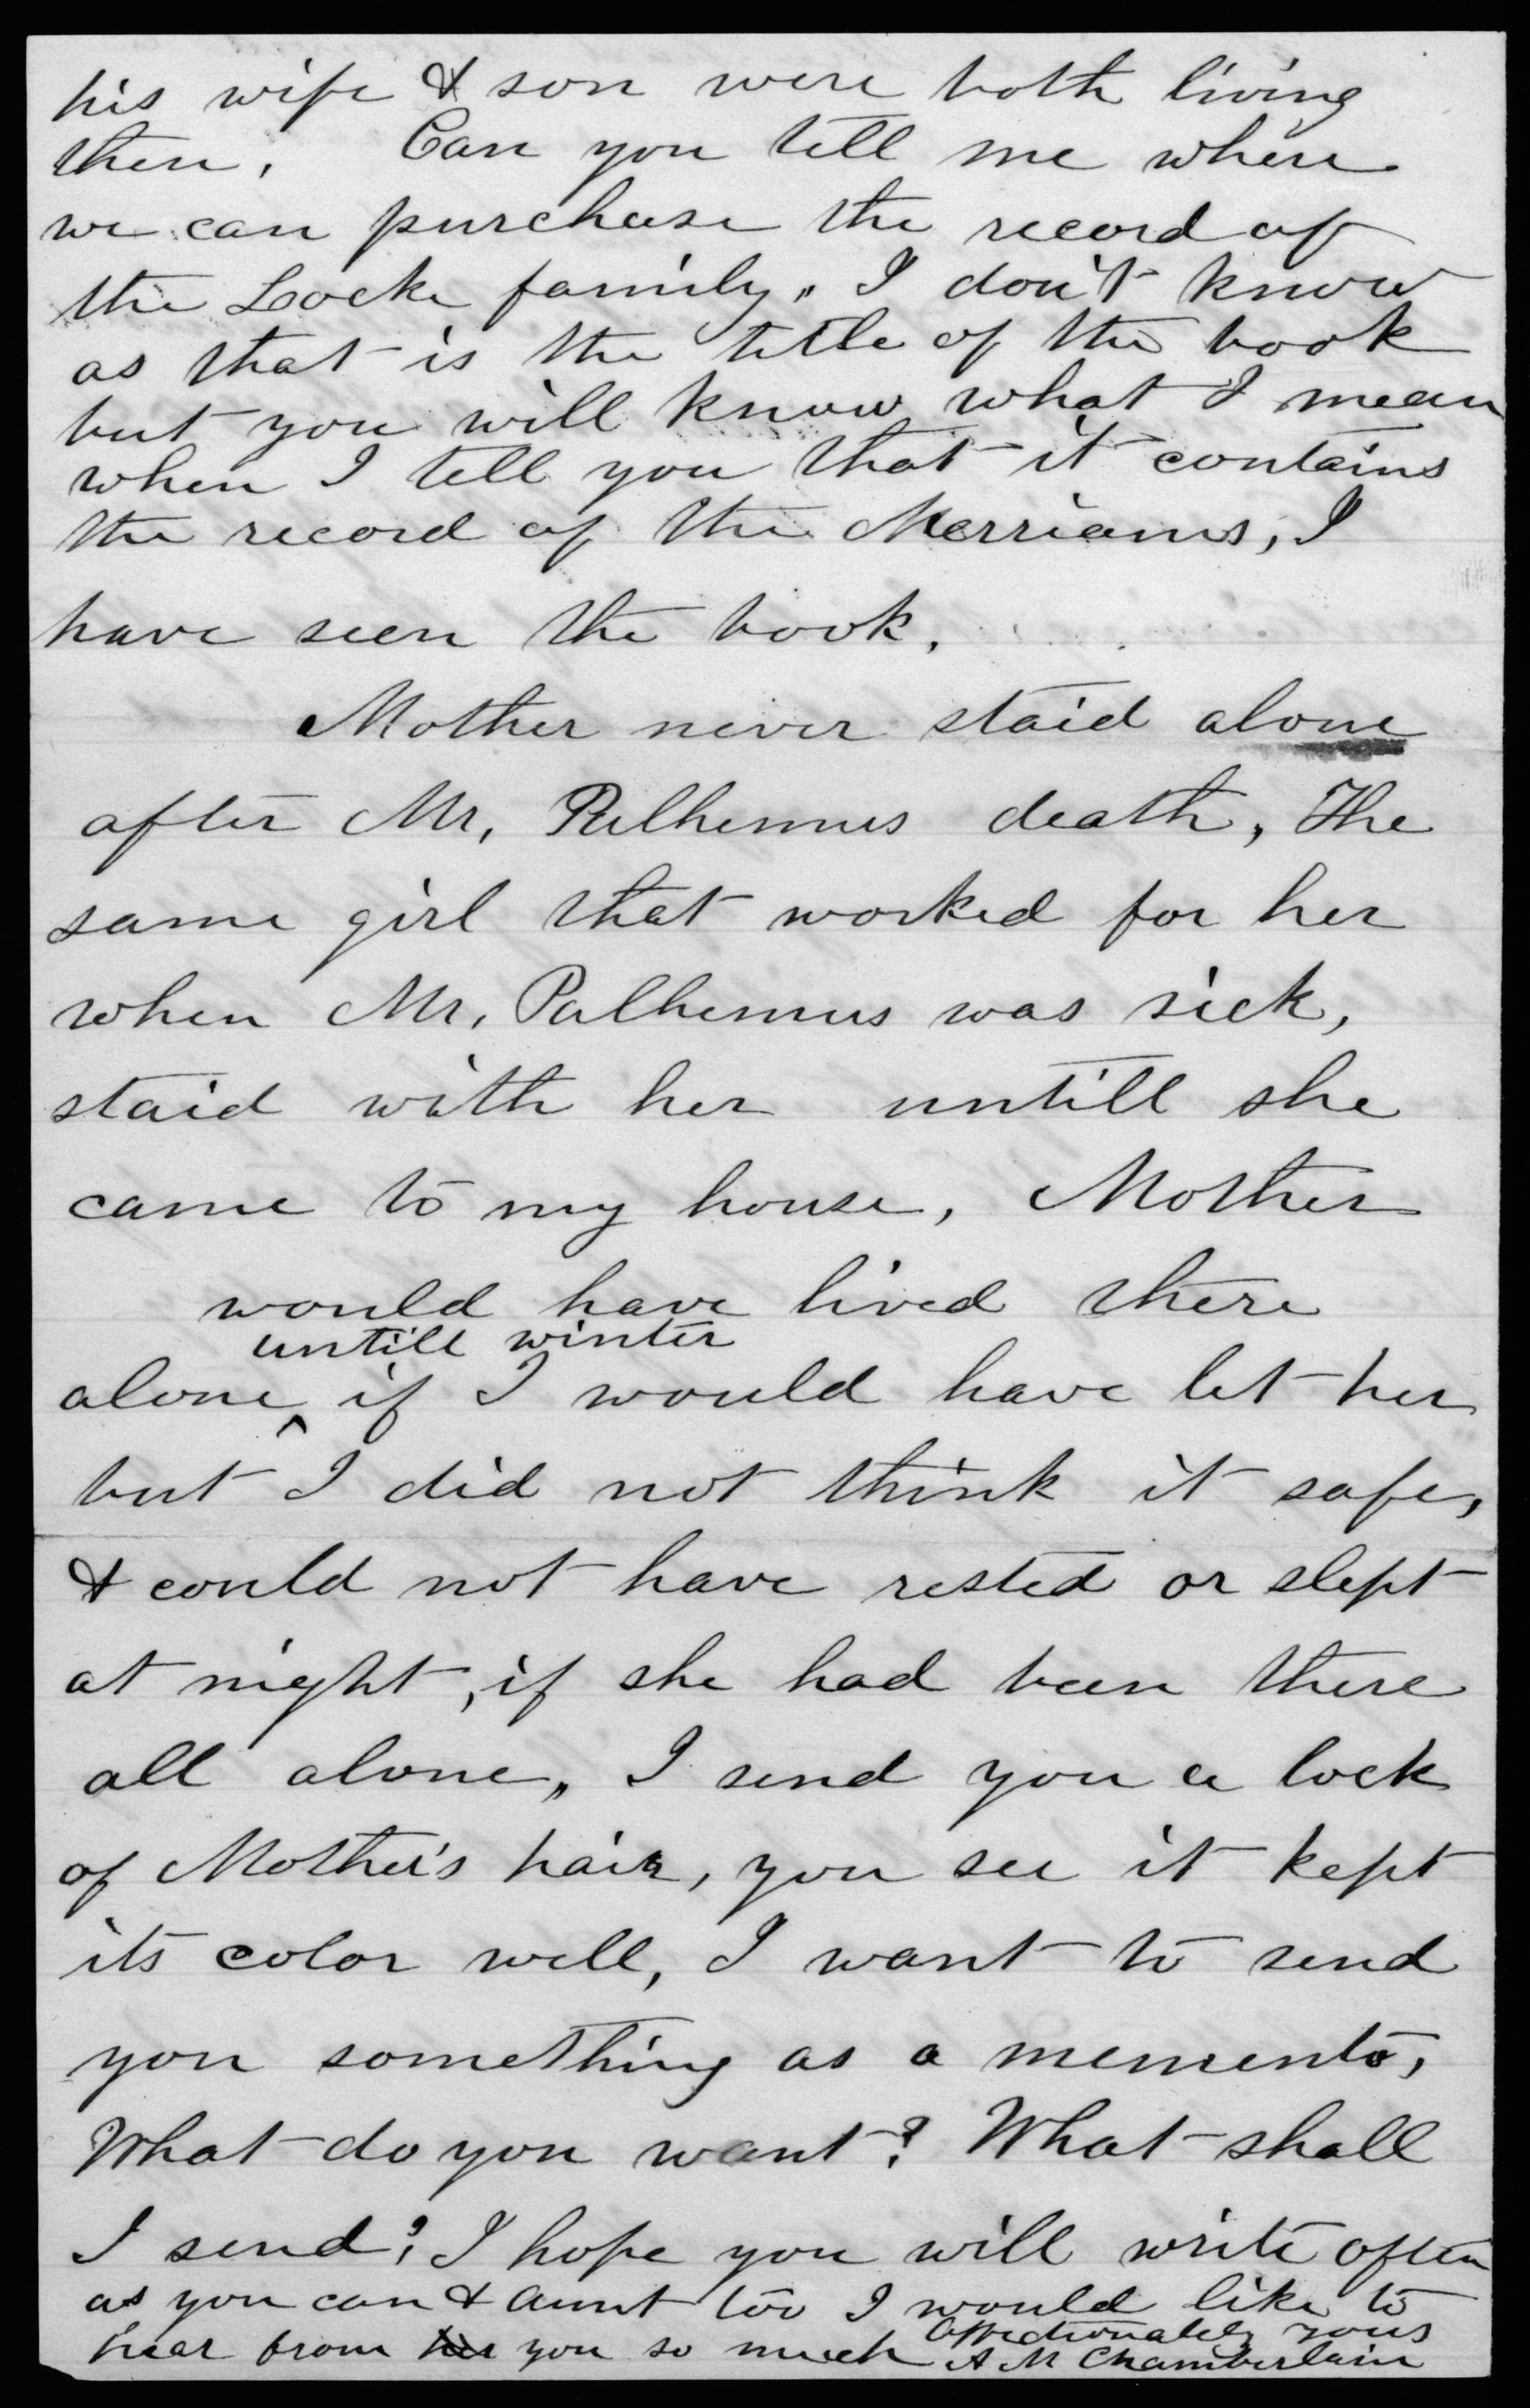 his wife & son were both living
then. Can you tell me where
we can purchase the record of
the Locke family," I don't know
as that is the title of the book
but you will know what I mean
when I tell you that it contains
the record of the Merriams, I
have seen the book.
Mother never staid alone
after Mr. Pulhemus death, The
same girl that worked for her
when Mr. Pulhemus was sick,
staid with her untill she
came to my house, Mother
would have lived there
untill winter
alone ^ if I would have let her
but I did not think it safe,
& could not have rested or slept
at night, if she had been there
all alone," I send you a lock
of Mother's hair, you see it kept
its color well, I want to send
you something as a memento,
What do you want? What shall
I send? I hope you will write often
as you can & aunt too I would like to
hear from her you so much Affectionately yours
A M Chamberlain